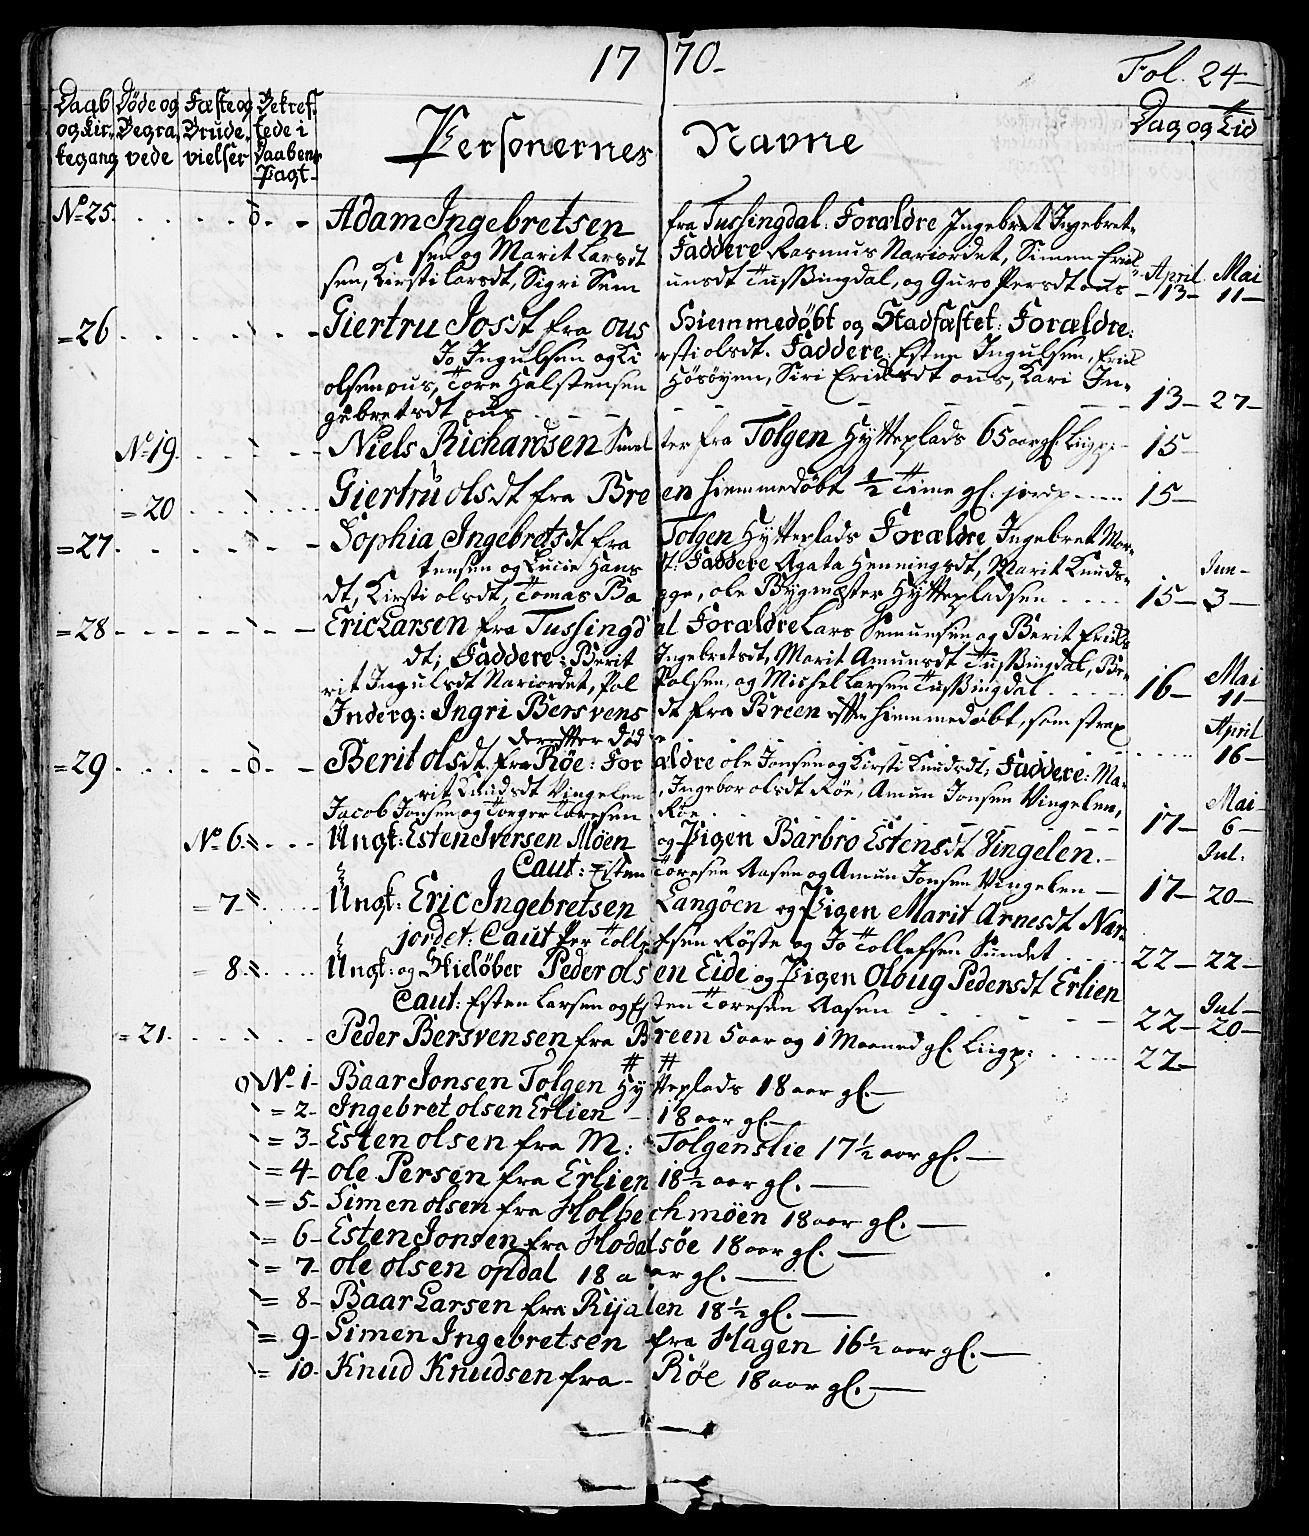 1770 Fol. 24
Daab og Kirkegang Døde og Begravede Fæste og Brudevielser Bekreftede i Daabens Pagt Personernes Navne Dag og Tid
No 25 Adam Ingebretsen fra Tufsingdal. Forældre Ingebret Ingebret-
sen og Marit Larsdt Faddere Rasmus Nariordet, Simen Erik-
sen, Kirsti Larsdt, Sigri Sem unsdt Tufsingdal, og Guro Persdt ous April 13 Mai 11
26 Giertru Josdt fra ous Hiemmedøbt og Stadfæstet: Forældre:
Jo Ingulsen og Ki rsti olsdt. Faddere: Esten Ingulsen, Erik
olsen ous, Tore Halstensen Høsøyen, Siri Ericksdt ous, Kari In-
gebretsdt ous 13 27
No 19 Niels Richardsen Smel ter fra Tolgen Hytteplads 65 aar gl. Liigp: 15
20 Giertru olsdt fra Bre en hiemmedøbt ½ Time gl. jordp 15
27 Sophia Ingebretsdt fra Tolgen Hytteplads Forældre Ingebret Mor-
tensen og Lucie Hans dt. Faddere Agata Henningsdt, Marit Knuds-
dt, Kirsti olsdt, Tomas Ba gge, ole Bygmester Hyttepladsen 15 Jun- 3
28 Eric Larsen fra Tufsingd al Forældre Lars Semunsen og Berit Eriks
dt; Faddere: Berit Ingebretsdt, Marit Amunsdt Tufsingdal, Be-
rit Ingulsdt Nariordet, Pol Polsen, og Michel Larsen Tufsingdal 16 Mai 11
Inderq: Ingri Bersvens dt fra Breen efter hiemmedøbt, som strax April
derefter død 16
29 Berit olsdt fra Røe: For ældre ole Jonsen og Kirsti Knudsdt; Faddere: Ma-
rit Knudsdt Vingelen, Ingebor olsdt Røe, Amun Jonsen Vingelen,
Jacob Jonsen og Torger Toresen Røe 17 Mai 6
No 6 Ungk: Esten Iversen Moen og Pigen Barbro Estensdt Vingelen.
Caut: Esten Toresen Aasen og Amun Jonsen Vingelen 17 Jul. 20
7 Ungk: Eric Ingebretsen Langøen og Pigen Marit Arnesdt Nar-
jordet: Caut Per Tolle fsen Røste og Jo Tollefsen Sundet 22 22
8 Ungk: og Skieløber Peder olsen Eide og Pigen Oloug Pedersdt Erlien
Caut: Esten Larsen og Esten Toresen Aasen 22 Jul 20
21 Peder Bersvensen fra Breen 5 aar og 1 Maaned gl. Liigp: 22
No 1 Baar Jonsen Tolgen Hytteplads 18 aar gl.
2 Ingebret olsen Erlien 18 aar gl.
3 Esten olsen fra M: Tolgenslie 17½ aar gl.
4 ole Persen fra Erlien 18½ aar gl.
5 Simen olsen fra Holbechmøen 18 aar gl.
6 Esten Jonsen fra Hodalsøe 18 aar gl.
7 ole olsen opdal 18 aar gl.
8 Baar Larsen fra Rijalen 18½ gl.
9 Simen Ingebretsen fra Hagen 16½ aar gl.
10 Knud Knudsen fra Røe 18 aar gl.